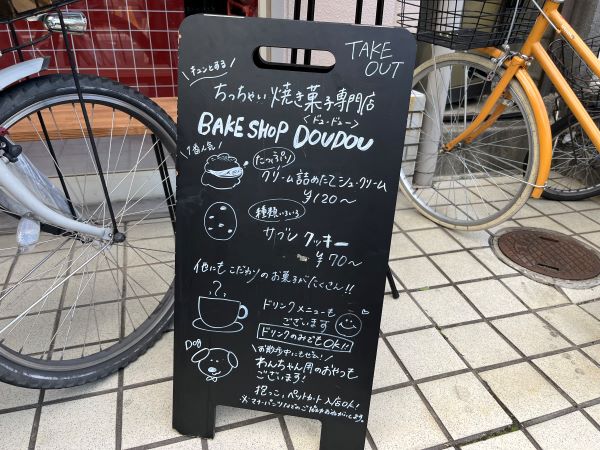 TAKE OUT
キュンとする
ちっちゃい焼き菓子専門店
<ドゥ・ドゥー>
BAKE SHOP DOUDOU
1番人気
たっぷり
クリーム詰めたてシュ・クリーム
¥120〜
種類いろいろ
サブレクッキー
¥70〜
他にもこだわりのお菓子がたくさん!!
ドリンクメニューも
ございます
ドリンクのみでもOK!!
Dog
お散歩中にもぜひ
わんちゃん用のおやつも
ございます!
抱っこ、ペットカート入店OK!
※マナーパンツなどのご協力お願いします。